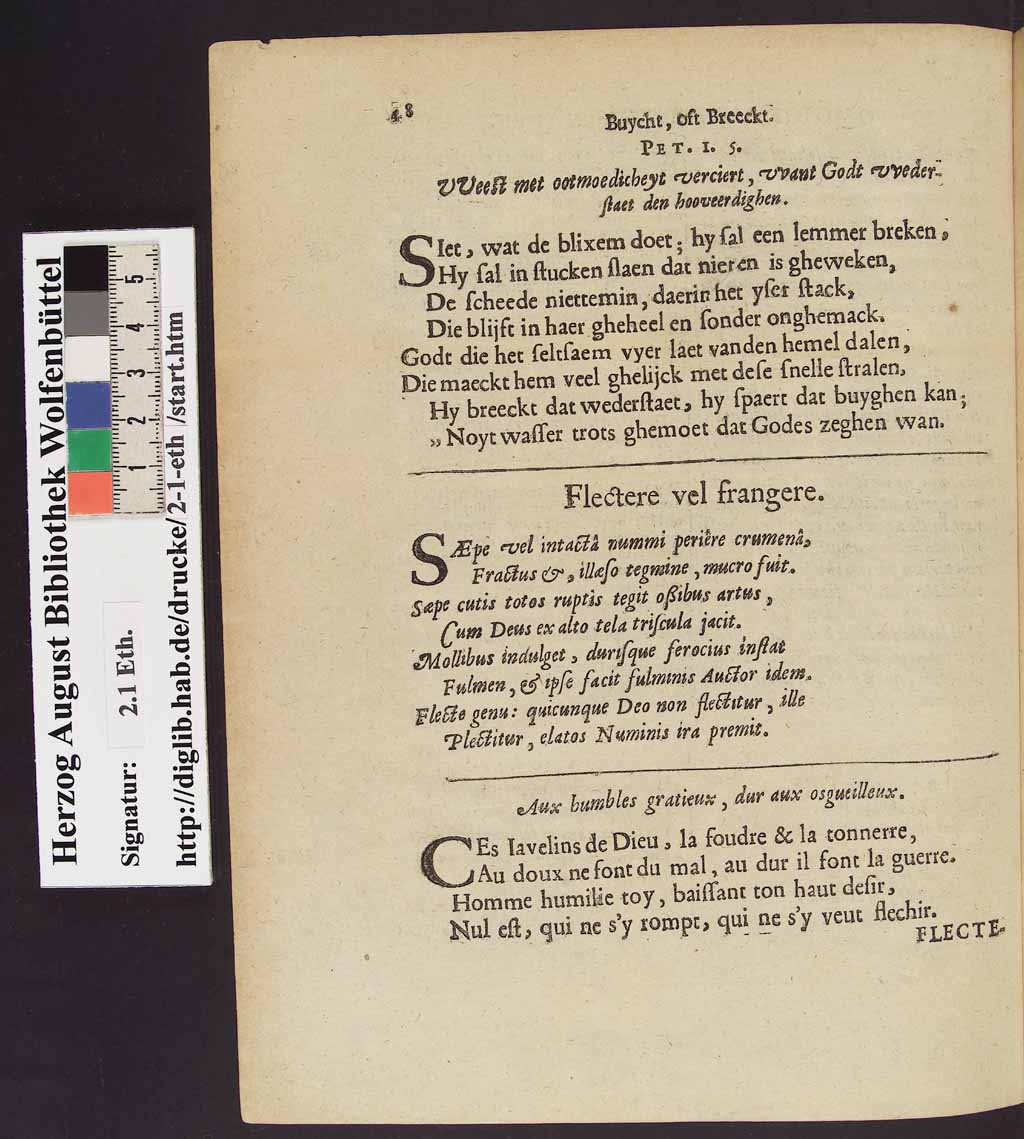 48
Buycht, oft Breeckt.
PET. I. 5.
VVeest met ootmoedicheyt verciert, vvant Godt vveder-
staet den hooveerdighen.
SIet, wat de blixem doet; hy sal een lemmer breken,
Hy sal in stucken slaen dat nieren is gheweken,
De scheede niettemin, daerin het yser stack,
Die blijft in haer gheheel en sonder onghemack.
Godt die het seltsaem vyer laet vanden hemel dalen,
Die maeckt hem veel ghelijck met dese snelle stralen,
Hy breeckt dat wederstaet, hy spaert dat buyghen kan;
„ Noyt wasser trots ghemoet dat Godes zeghen wan.
Flectere vel frangere.
SÆpe vel intactâ nummi periêre crumenâ,
Fractus &, illæso tegmine, mucro fuit.
Sæpe cutis totos ruptis tegit ossibus artus,
Cum Deus ex alto tela triscula jacit.
Mollibus indulget, durisque ferocius instat
Fulmen, & ipse facit fulminis Auctor idem.
Flecte genu: quicunque Deo non flectitur, ille
Plectitur, elatos Numinis ira premit.
Aux humbles gratieux, dur aux osgueilleux.
CEs Iavelins de Dieu, la foudre & la tonnerre,
Au doux ne font du mal, au dur il font la guerre.
Homme humilie toy, baissant ton haut desir,
Nul est, qui ne s'y rompt, qui ne s'y veut flechir.
FLECTE-
Herzog August Bibliothek Wolfenbüttel
Signatur: 2.1 Eth.
http://diglib.hab.de/drucke/2-1-eth /start.htm
1 2 3 4 5